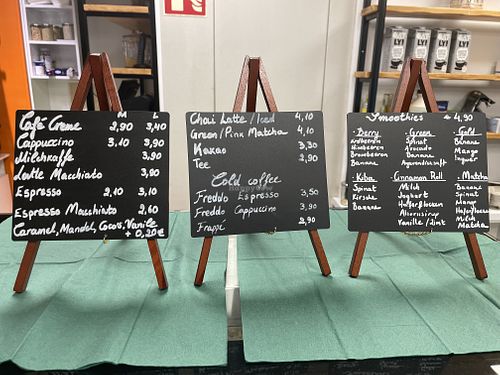 M L
Café Creme 2,90 3,40
Cappuccino 3,10 3,90
Milchkaffe 3,90
Latte Macchiato 3,90
Espresso 2,10 3,10
Espresso Macchiato 2,60
Caramel, Mandel, Cocos, Vanille
+ 0,20€
Chai Latte/Iced 4,10
Green/Pink Matcha 4,10
Kakao 3,30
Tee 2,90
Cold coffee
Freddo Espresso 3,50
Freddo Cappuccino 3,90
Frappe 2,90
Smoothies 4,90
· Berry
Erdbeeren
Himbeeren
Brombeeren
Banane
· Green
Spinat
Avocado
Banane
Agavendicksaft
· Gold
Banane
Mango
Ingwer
· Kiba
Spinat
Kirsche
Banane
Cinnamon Roll
Milch
Joghurt
Haferflocken
Ahornsirup
Vanille/Zimt
· Matcha
Banane
Spinat
Mango
Haferflocken
Milch
Matcha
LY!
LY!
LY!
LY!